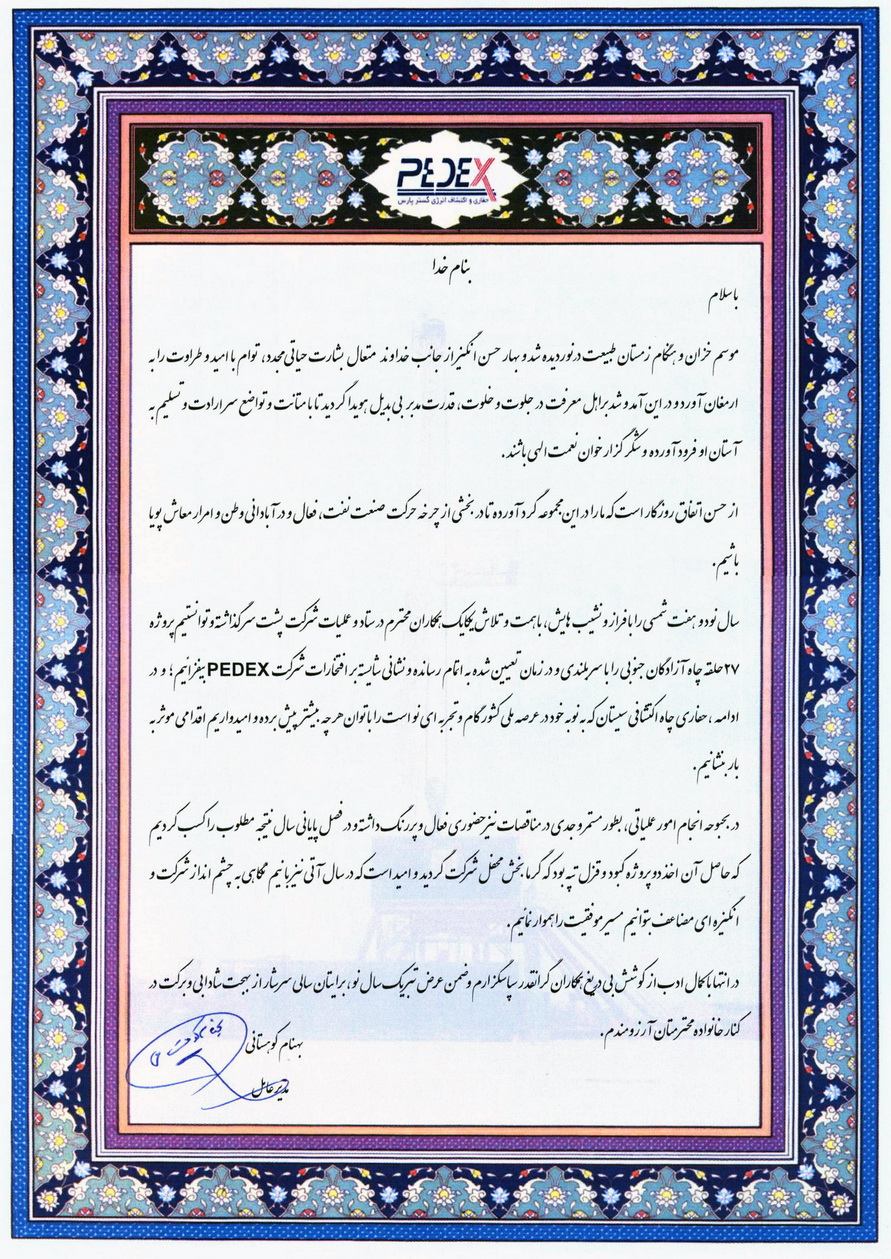 PEDEX
حفاری و اکتشاف انرژی گستر پارس
بنام خدا
باسلام
موسم خزان و هنگام زمستان طبیعت در نوردیده شد و بهار حسن انگیز از جانب خداوند متعال بشارت حیاتی مجدد، توام با امید و طراوت را به
ارمغان آورد و در این آمد و شد بر اهل معرفت در جلوت و خلوت، قدرت مدبر بی بدیل هویدا گردید تا با متانت و تواضع سر ارادت و تسلیم به
آستان او فرود آورده و شکر گزار خوان نعمت الهی باشند.
از حسن اتفاق روزگار است که ما را در این مجموعه گرد آورده تا در بخشی از چرخه حرکت صنعت نفت، فعال و در آبادانی وطن و امرار معاش پویا
باشیم.
سال نود و هفت شمسی را با فراز و نشیب هایش، با همت و تلاش یکایک همکاران محترم در ستاد و عملیات شرکت پشت سر گذاشته و توانستیم پروژه
۲۷ حلقه چاه آزادگان جنوبی را با سربلندی و در زمان تعیین شده به اتمام رسانده و نشانی شایسته بر افتخارات شرکت PEDEX بیفزائیم؛ و در
ادامه، حفاری چاه اکتشافی سیستان که به نوبه خود در عرصه ملی کشور گام و تجربه ای نو است را با توان هر چه بیشتر پیش برده و امیدواریم اقدامی موثر به
بار بنشانیم.
در بحبوحه انجام امور عملیاتی، بطور مستمر و جدی در مناقصات نیز حضوری فعال و پررنگ داشته و در فصل پایانی سال نتیجه مطلوب را کسب کردیم
که حاصل آن اخذ دو پروژه کبود و قزل تپه بود که گرما بخش محفل شرکت گردید و امید است که در سال آتی نیز با نیم نگاهی به چشم انداز شرکت و
انگیزه ای مضاعف بتوانیم مسیر موفقیت را هموار نمائیم.
در انتها با کمال ادب از کوشش بی دریغ همکاران گرانقدر سپاسگزارم و ضمن عرض تبریک سال نو، برایتان سالی سرشار از بهجت شادابی و برکت در
کنار خانواده محترمتان آرزومندم.
بهنام کوهستانی
مدیر عامل